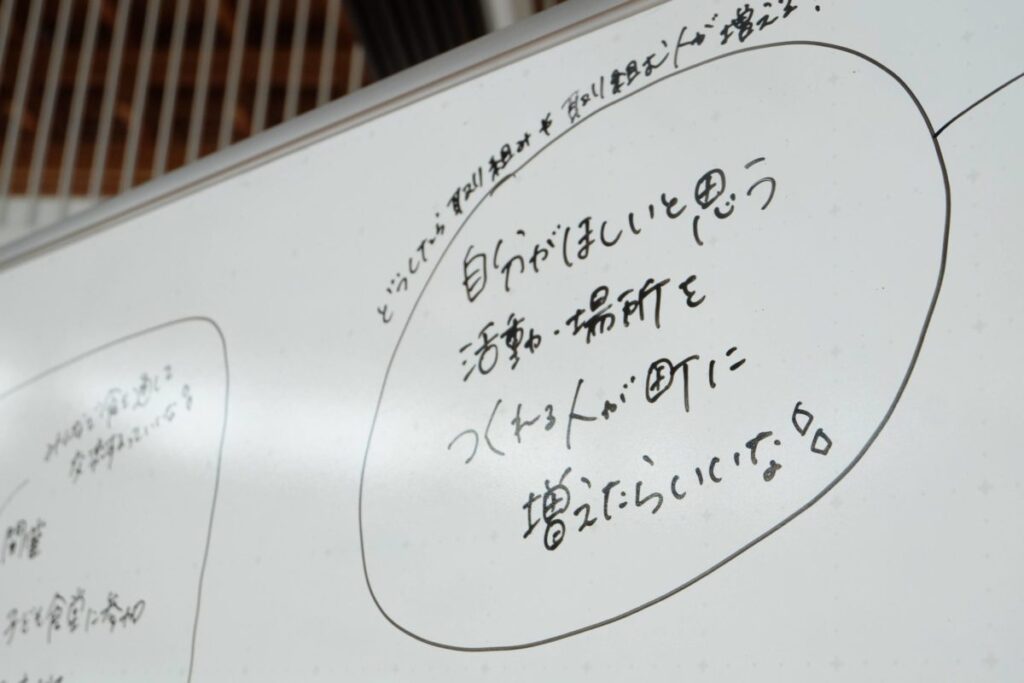 どうしたら取り組みや取り組む人が増える?
自分がほしいと思う
活動・場所を
つくれる人が町に
増えたらいいな
みんなで食を通して
交流するっていいな
開催
子ども食堂に参加